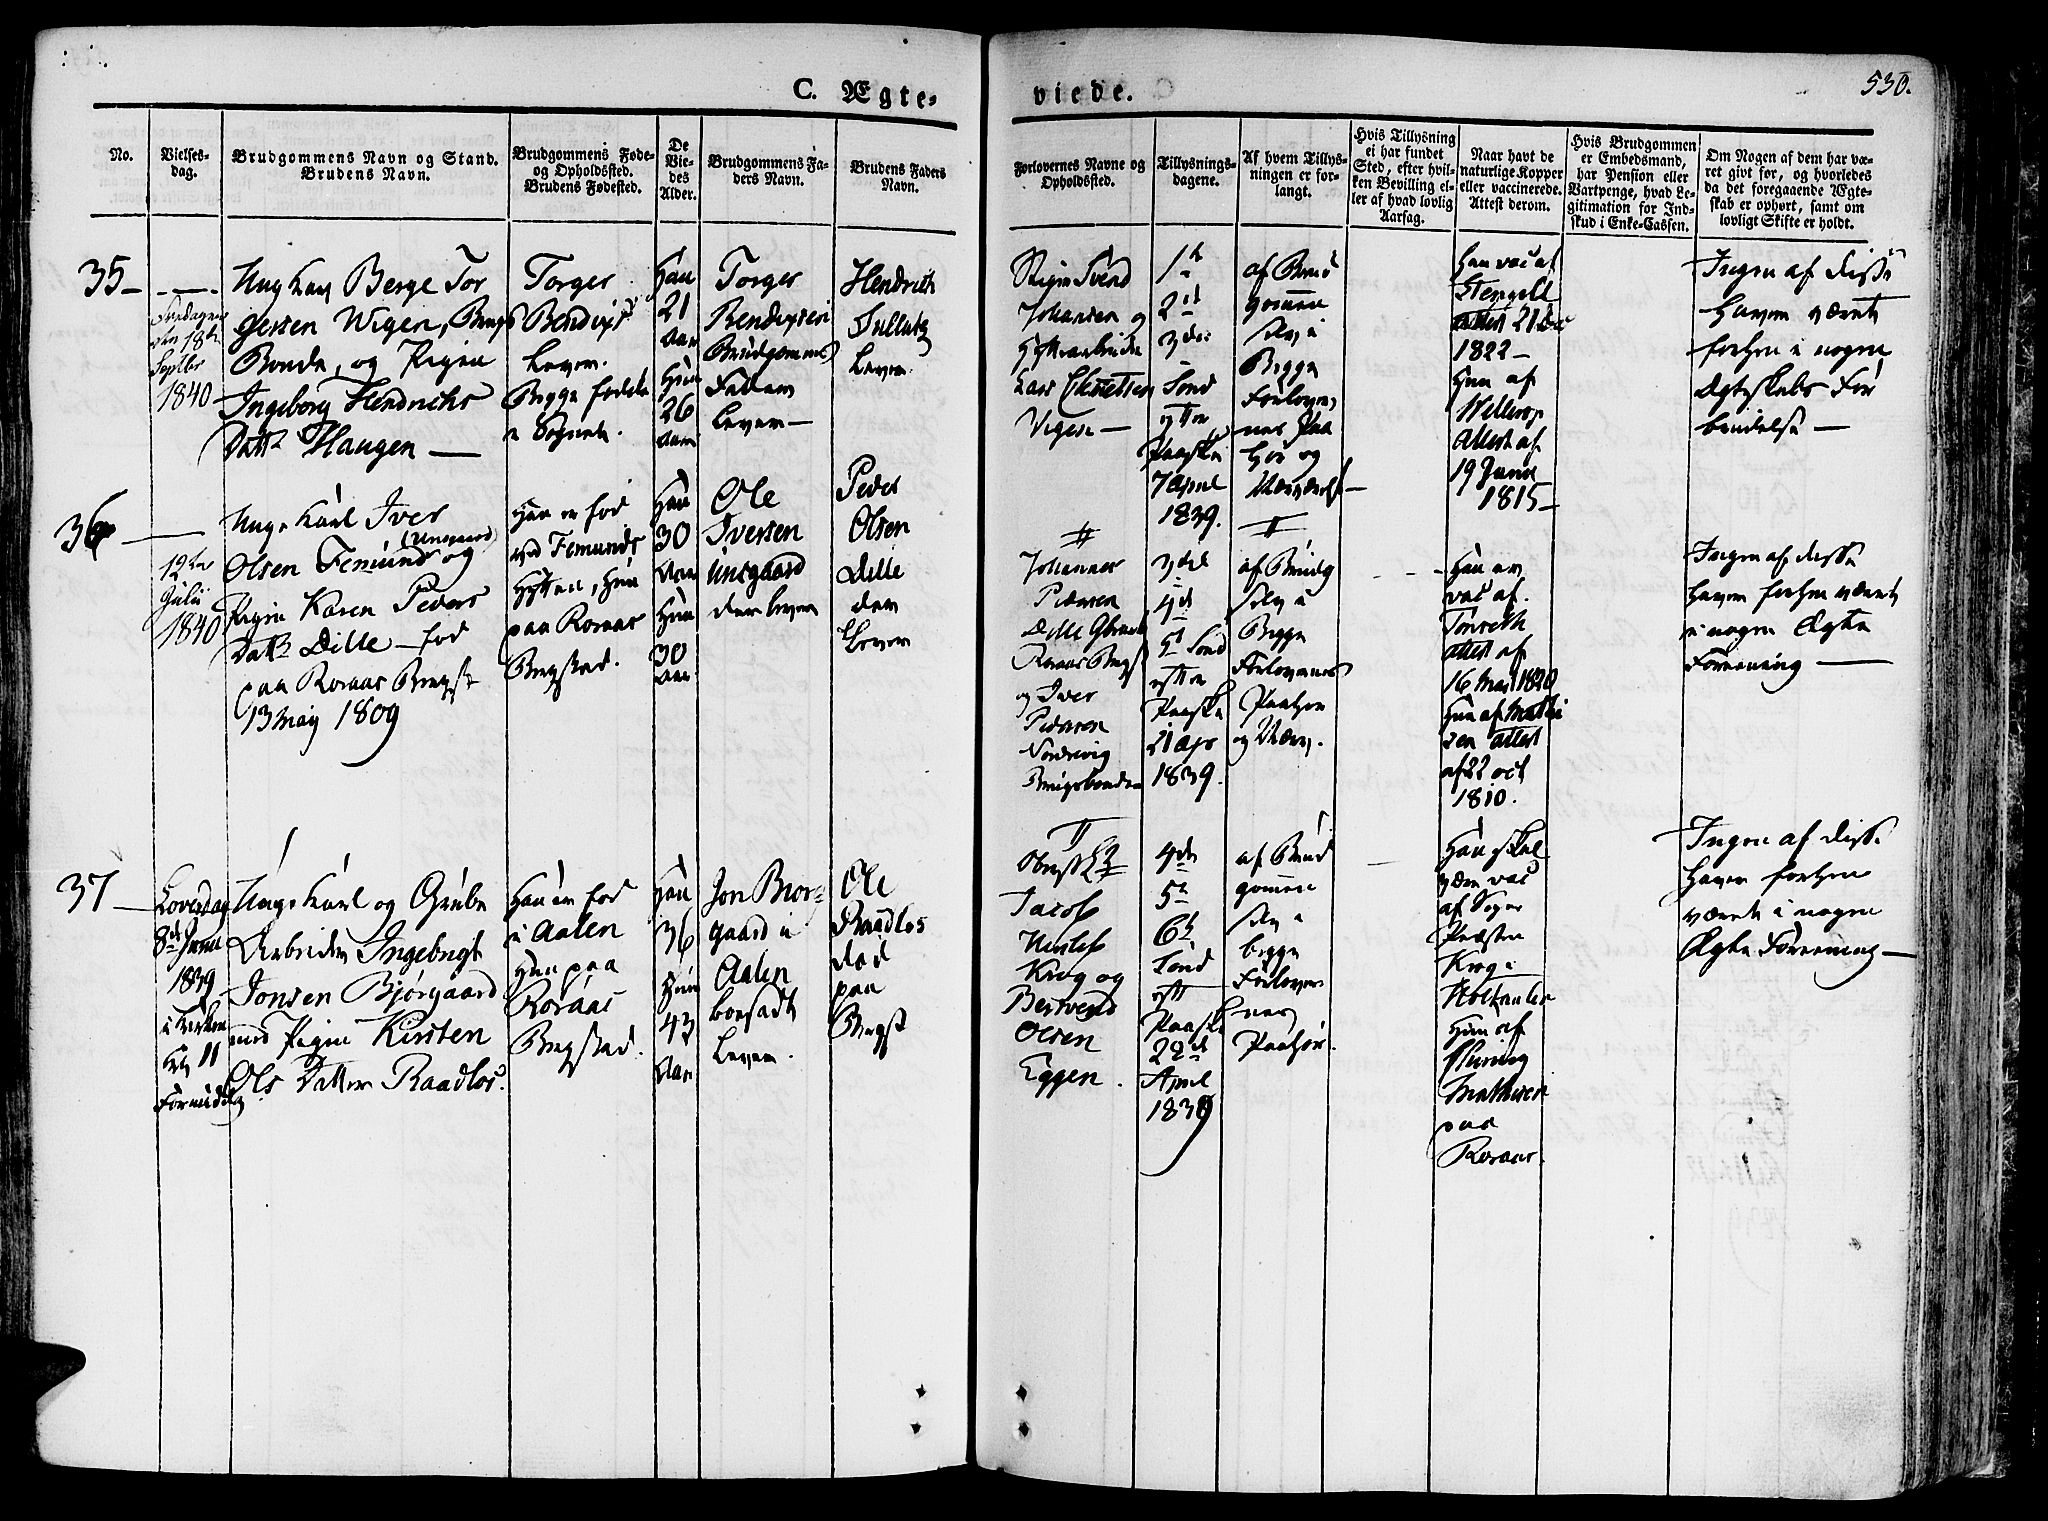 C. Ægte-
viede.
530.
No.
Vielses-
dag.
Brudgommens Navn og Stand.
Brudens Navn.
Brudgommens Føde-
og Opholdssted.
Brudens Fødested.
De
Vie-
des
Alder.
Brudgommens Fa-
ders Navn.
Brudens Faders
Navn.
Forlovernes Navne og
Opholdssted.
Tillysnings-
dagene.
Af hvem Tillys-
ningen er for-
langt.
Hvis Tillysning
ei har fundet
Sted, efter hvil-
ken Bevilling el-
ler af hvad lovlig
Aarsag.
Naar havt de
naturlige Kopper
eller vaccinerede.
Attest derom.
Hvis Brudgommen
er Embedsmand,
har Pension eller
Vartpenge, hvad Le-
gitimation for Ind-
skud i Enke-Cassen.
Om Nogen af dem har væ-
ret givt før, og hvorledes
da det foregaaende Ægte-
skab er ophørt, samt om
lovligt Skifte er holdt.
35 –
Fredagen
den 18de
Septbr
1840
Ung Karl Berge Tor
gersen Wigen, Bergs
Bonde, og Pigen
Ingeborg Hendrichs
Datt. Haugen —
Torger
Bendixs
Lever.
Begge fødde
i Sognet.
Han
21
Aar
Hun
26
Aar
Torger
Bendixsen
Brudgommens
Fader
Lever —
Hendrich
Lever.
Svend
Johansen og
Hyttearbeider
Lars
Vigen —
1te
2den
3die
Sønd
efter
Paaske
7 April
1839.
af Brud
gommen
selv i
Begge
Forlover
nes Paa
hør og
Han vac af
Stengell
attest 21 Dec
1822 –
Hun af
Attest af
19 Junii
1815 –
Ingen af disse
Haver været
forhen i nogen
Ægteskabs For
bindelse —
36 —
12te
Julii
1840
Unge Karl Iver
(Unsgaard)
Olsen Femund og
Pigen Karen Peders
Datt. Dille – fød
paa Roraas Bergst
13 May 1809
Han er fød
ved Femunds
Hytten, Hun
paa Roraas
Bergstad.
Han
30
Aar
Hun
30
Aar
Ole
Iversen
Unsgaard
der lever
Peder
Olsen
Dille
der
Lever
Johannes
Pedersen
Dille
Roraas Bergst
og Iver
Pedersen
Bergsbonden
3die
4de
5te Sønd
efter
Paaske
21 Apr
1839.
af Brudg
selv i
Begge
Forlovernes
Paahør
og Værg.
Han er
vac af
Tønseth
attest af
16 Mai 1820
Hun af Mathi
sen attest
af 22 oct
1810.
Ingen af disse
Haver forhen været
i nogen Ægte
Foreening —
37 —
Løverdag
8de Junii
1839
i Kirken
Kl 11
Formiddag
Unge Karl og Grube
Arbeider Ingebrigt
Jonsen Bjørgaard
med Pigen Kirsten
Ols Datter Raadlos.
Han er fød
i Aalen
Hun paa
Roraas
Bergstad.
Han
36
Hun
43
Aar
Jon Bior-
gaard i
Aalen
borsadt
Lever.
Ole
Raadlos
død
paa
Bergst
Jacob
Krog og
Bersvend
Olsen
Eggen.
4de
5te
6te
Sønd
eft
Paaske
22de
April
1839
af Brud
gommen
selv i
begge
Forlover
nes
Paahør.
Han skal
være vac
af Sogne
Præsten
Krog i
Holtaalen
Hun af
Chirurg
Mathisen
paa
Roraas.
Ingen af disse
Haver forhen
været i nogen
Ægte Foreening —